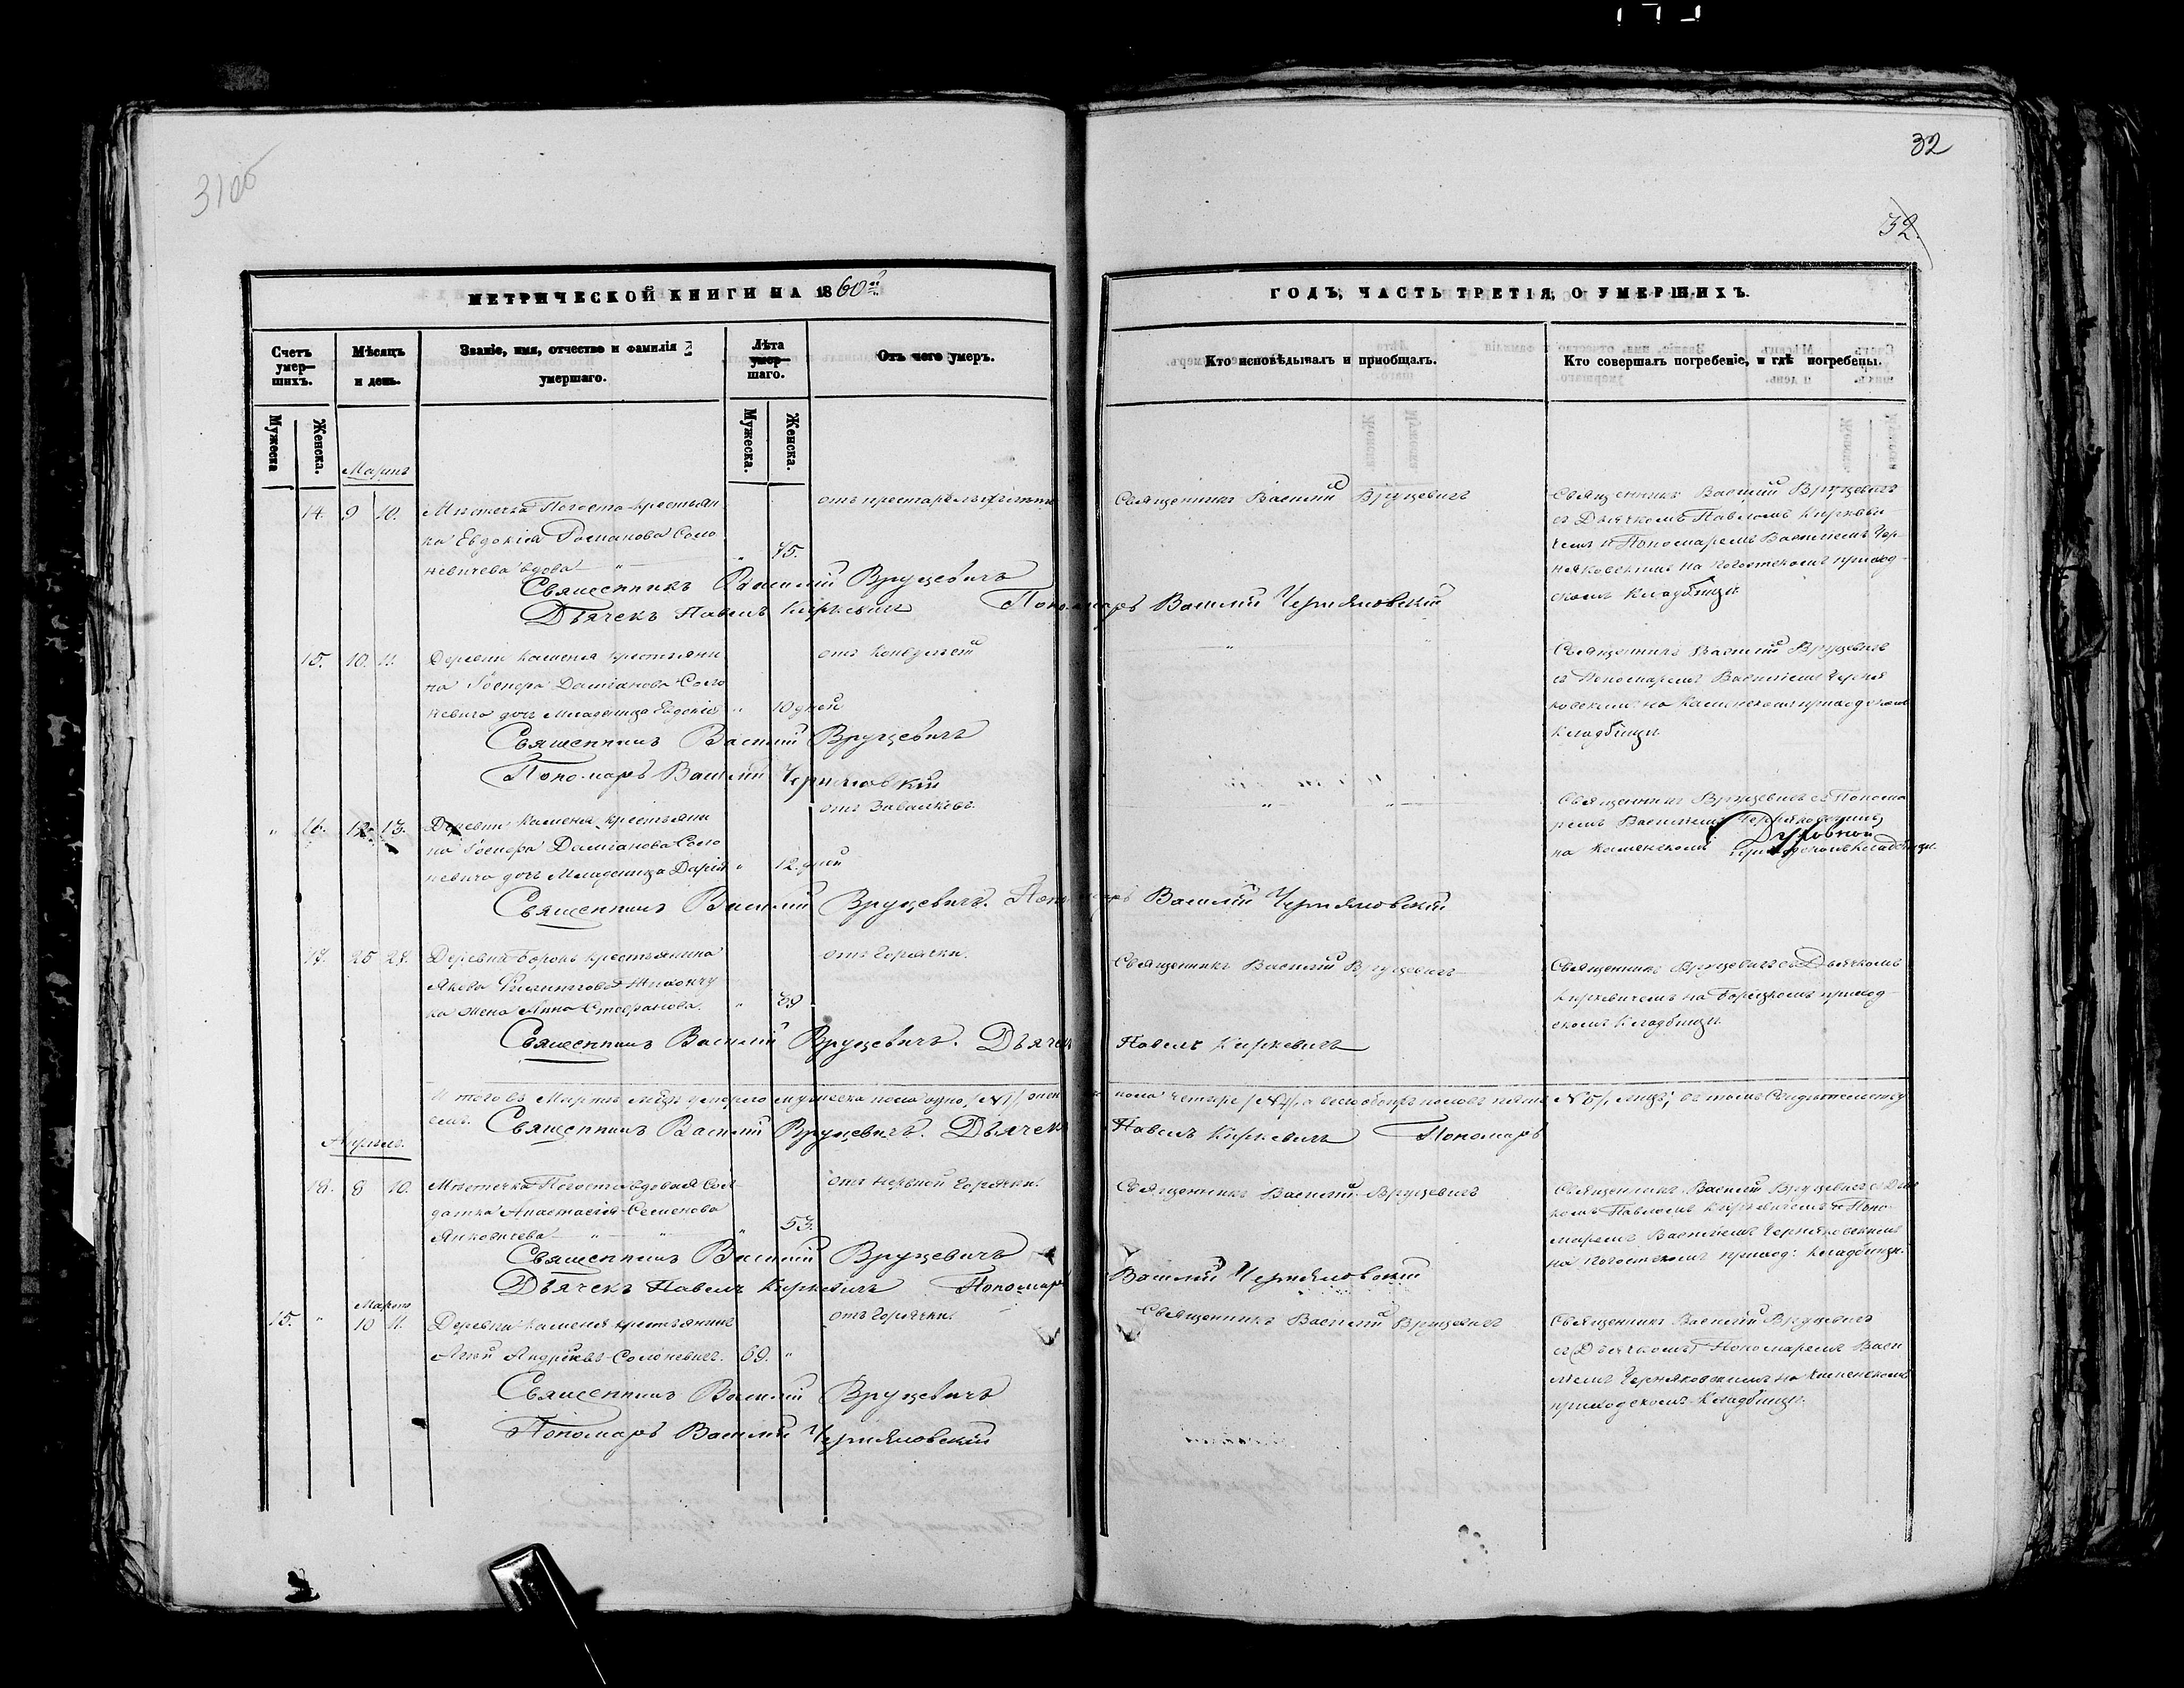 31 об
32
32.
МЕТРИЧЕСКОЙ КНИГИ НА 1860й
ГОДЪ, ЧАСТЬ ТРЕТІЯ, О УМЕРШИХЪ.
Счетъ умер-шихъ.
Мѣсяцъ и день.
Званіе, имя, отчество и фамилія умершаго.
Лѣта умер-шаго.
Отъ чего умеръ.
Кто исповѣдывалъ и приобщалъ.
Кто совершалъ погребеніе, и гдѣ погребены.
Мужеска
Женска.
Мужеска.
Женска.
Мартъ
14. 9 10. Мѣстечка Погоста крестьян
ка Евдокія Романова Соло
невичева вдова — " — " 75.
Священникъ Василій Вруцевичъ
с Дьячкомъ Павломъ Киркеви
чемъ и Пономаремъ Василіемъ Чер-
няковскимъ на Погостскомъ приход-
скомъ кладбищи.
Священникъ Василій Вруцевичъ
Священникъ Василій Вруцевичъ
Дьячекъ Павелъ Киркевичъ Пономаръ Василій Черняковскій
15. 10. 11. Деревни Каменя крестьяни
на Іосифа Даміанова Соло
невича дочь Младеница Евдокія " 10 дней
Священникъ Василій Вруцевичъ
съ Пономаремъ Василіемъ Черня
ковскимъ на Каменскомъ приходскомъ
кладбищи.
Священникъ Василій Вруцевичъ
Пономаръ Василій Черняковскій
" 16. 12. 13. Деревни Каменя крестьяни
на Даміанова Соло
невича дочь Младеница Дарія " 12 дней
Священникъ Вруцевичъ съ Понома
ремъ Василіемъ Черняковскимъ
на Каменскомъ приходскомъ кладбищи.
Духовной
Священникъ Василій Вруцевичъ. Пономаръ Василій Черняковскій
17. 25 27. Деревни крестьянина
Якова
ка жена Анна Стефанова. "
отъ Горячки.
Священникъ Василій Вруцевичъ
Священникъ Вруцевичъ съ Дьячкомъ
Киркевичемъ на приход-
скомъ кладбищи.
Священникъ Василій Вруцевичъ. Дьячекъ Павелъ Киркевичъ
И того въ Мартѣ м-цѣ умерло мужеска пола одно, /№1/, женска пола четыре /№4/, а всего обоего половъ пять №5/, лицъ, въ томъ свидѣтельству
емъ. Священникъ Василій Вруцевичъ. Дьячекъ Павелъ Киркевичъ Пономаръ
Апрель.
18. 8 10. Мѣстечка Погоста вдовая Сол
датка Анастасія Семенова
Янковичева — " — " — " 53.
отъ нервной Горячки.
Священникъ Василій Вруцевичъ
Священникъ Василій Вруцевичъ съ Дьяч
комъ Павломъ Киркевичемъ и Поно-
маремъ Василіемъ Черняковскимъ
на Погостскомъ приход: кладбищи.
Священникъ Василій Вруцевичъ
Дьячекъ Павелъ Киркевичъ Пономаръ Василій Черняковскій
Мартъ
15. " 10 11. Деревни Каменя крестьянинъ
Андріевъ Солоневич. 69. "
отъ Горячки.
Священникъ Василій Вруцевичъ
Священникъ Василій Вруцевичъ
съ (Дьячкомъ) Пономаремъ Васи
ліемъ Черняковскимъ на Каменскомъ
приходскомъ кладбищи.
Священникъ Василій Вруцевичъ
Пономаръ Василій Черняковскій